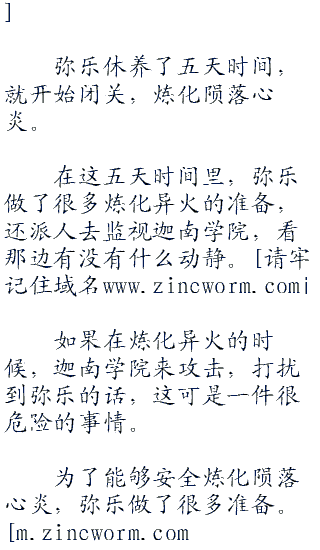 ]
弥乐休养了五天时间，
就开始闭关，炼化陨落心
炎。
在这五天时间里，弥乐
做了很多炼化异火的准备，
还派人去监视迦南学院，看
那边有没有什么动静。[请牢
记住域名www.zincworm.com|
如果在炼化异火的时
候，迦南学院来攻击，打扰
到弥乐的话，这可是一件很
危险的事情。
为了能够安全炼化陨落
心炎，弥乐做了很多准备。
[m.zincworm.com